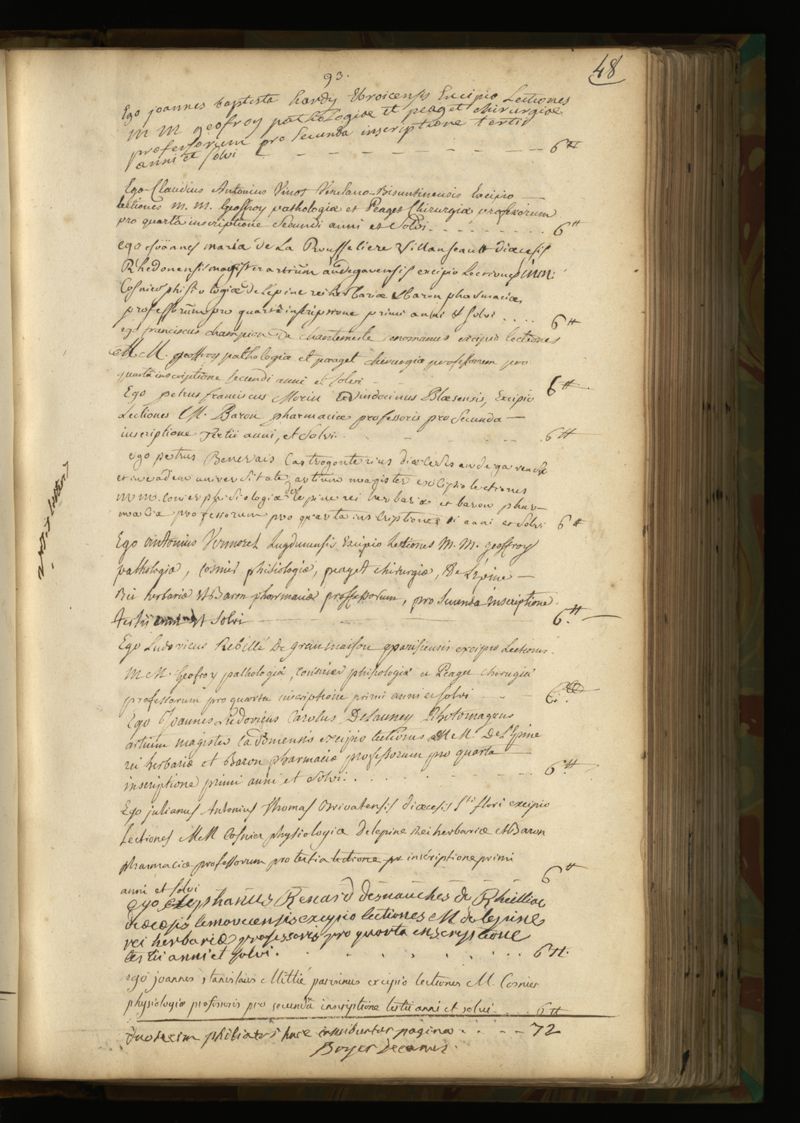 93.
48
Ego joannes baptista hardy Ebroicensis Excipio Lectiones
M M geofroy pathologiae et peaget chirurgiae
professorum pro Secunda inscriptione tertii
anni et solvi 6 ₶
Ego Claudius Antonius Vinot Bisuntinensis Excipio
lectiones M. M. Geoffroy pathologiae et Peaget Chirurgiae professorum
pro quarta inscriptione Secundi anni et Solvi 6 ₶
ego joannes maria de La Rousseliere diaecesis
Rhedonensis magister artium andegavensis excipio Lectiones
Cosnier phisiologiae de lépine rei herbariae Baron pharmaciae
professorum pro quarta inscriptione primi anni et Solvi 6 ₶
ego franciscus champion De chantemesle cenomanus excipio lectiones
M. M. geoffroy pathologiae et peaget chirurgiae professorum pro
quarta inscriptione secundi anni et solvi 6 ₶
Ego petrus franciscus Morin Vindocinus Blaesensis, Excipio
Lectiones M. Baron pharmaciae professoris pro Secunda
inscriptione tertii anni, et Solvi 6 ₶
ego petrus Benevais Castrogonterius diaecesis andegavensis
et in eadem universitate artium magister excipio lectiones
m m. cosnier phisiologiae de lepine rei herbariae et baron phar-
maciae professorum pro quarta inscriptione anni et solvi 6 ₶
Ego antonius Vernoret Lugdunensis Excipio lectiones M. M. geoffroy
pathologiae, cosnier phisiologiae, peaget chirurgiae, De Lépine
Rei herbariae et Baron pharmaciae professorum, pro Secunda inscriptione
tertii anni et solvi 6 ₶
Ego Ludovicus Rebillé De granmaison parisiensis excipio Lectiones
M. M. Geofroy pathologiae, cosnier phisiologiae et Peaget chirurgiae
professorum pro quarta inscriptione primi anni et solvi 6 ₶
Ego Joannes Ludovicus Carolus Delauney Rhotomagaeus
artium magister Cadomensis excipio lectiones M M. De l'Epine
rei herbariae et Baron pharmaciae professorum pro quarta
inscriptione primi anni et solvi 6 ₶
Ego julianus Antonius Thomas Brivatensis diaecesis Sti flori excipio
Lectiones M M Cosnier physiologiae delepine Rei herbariae et Baron
pharmaciae professorum pro tertia inscriptione primi
anni et solvi 6 ₶
ego Stephanus Renard desnauches de Rheilliac
diaecesis lemovicensis excipio lectiones M delepine
rei herbariae professoris pro quarta inscryptione
tertii anni et solvi 6 ₶
ego joannes stanislaus Mittié parisinus excipio lectiones M Cosnier
physiologiae professoris pro secunda inscriptione tertii anni et solvi 6 ₶
Duodecim philiatri hace pagina 72
Boyer decanus.